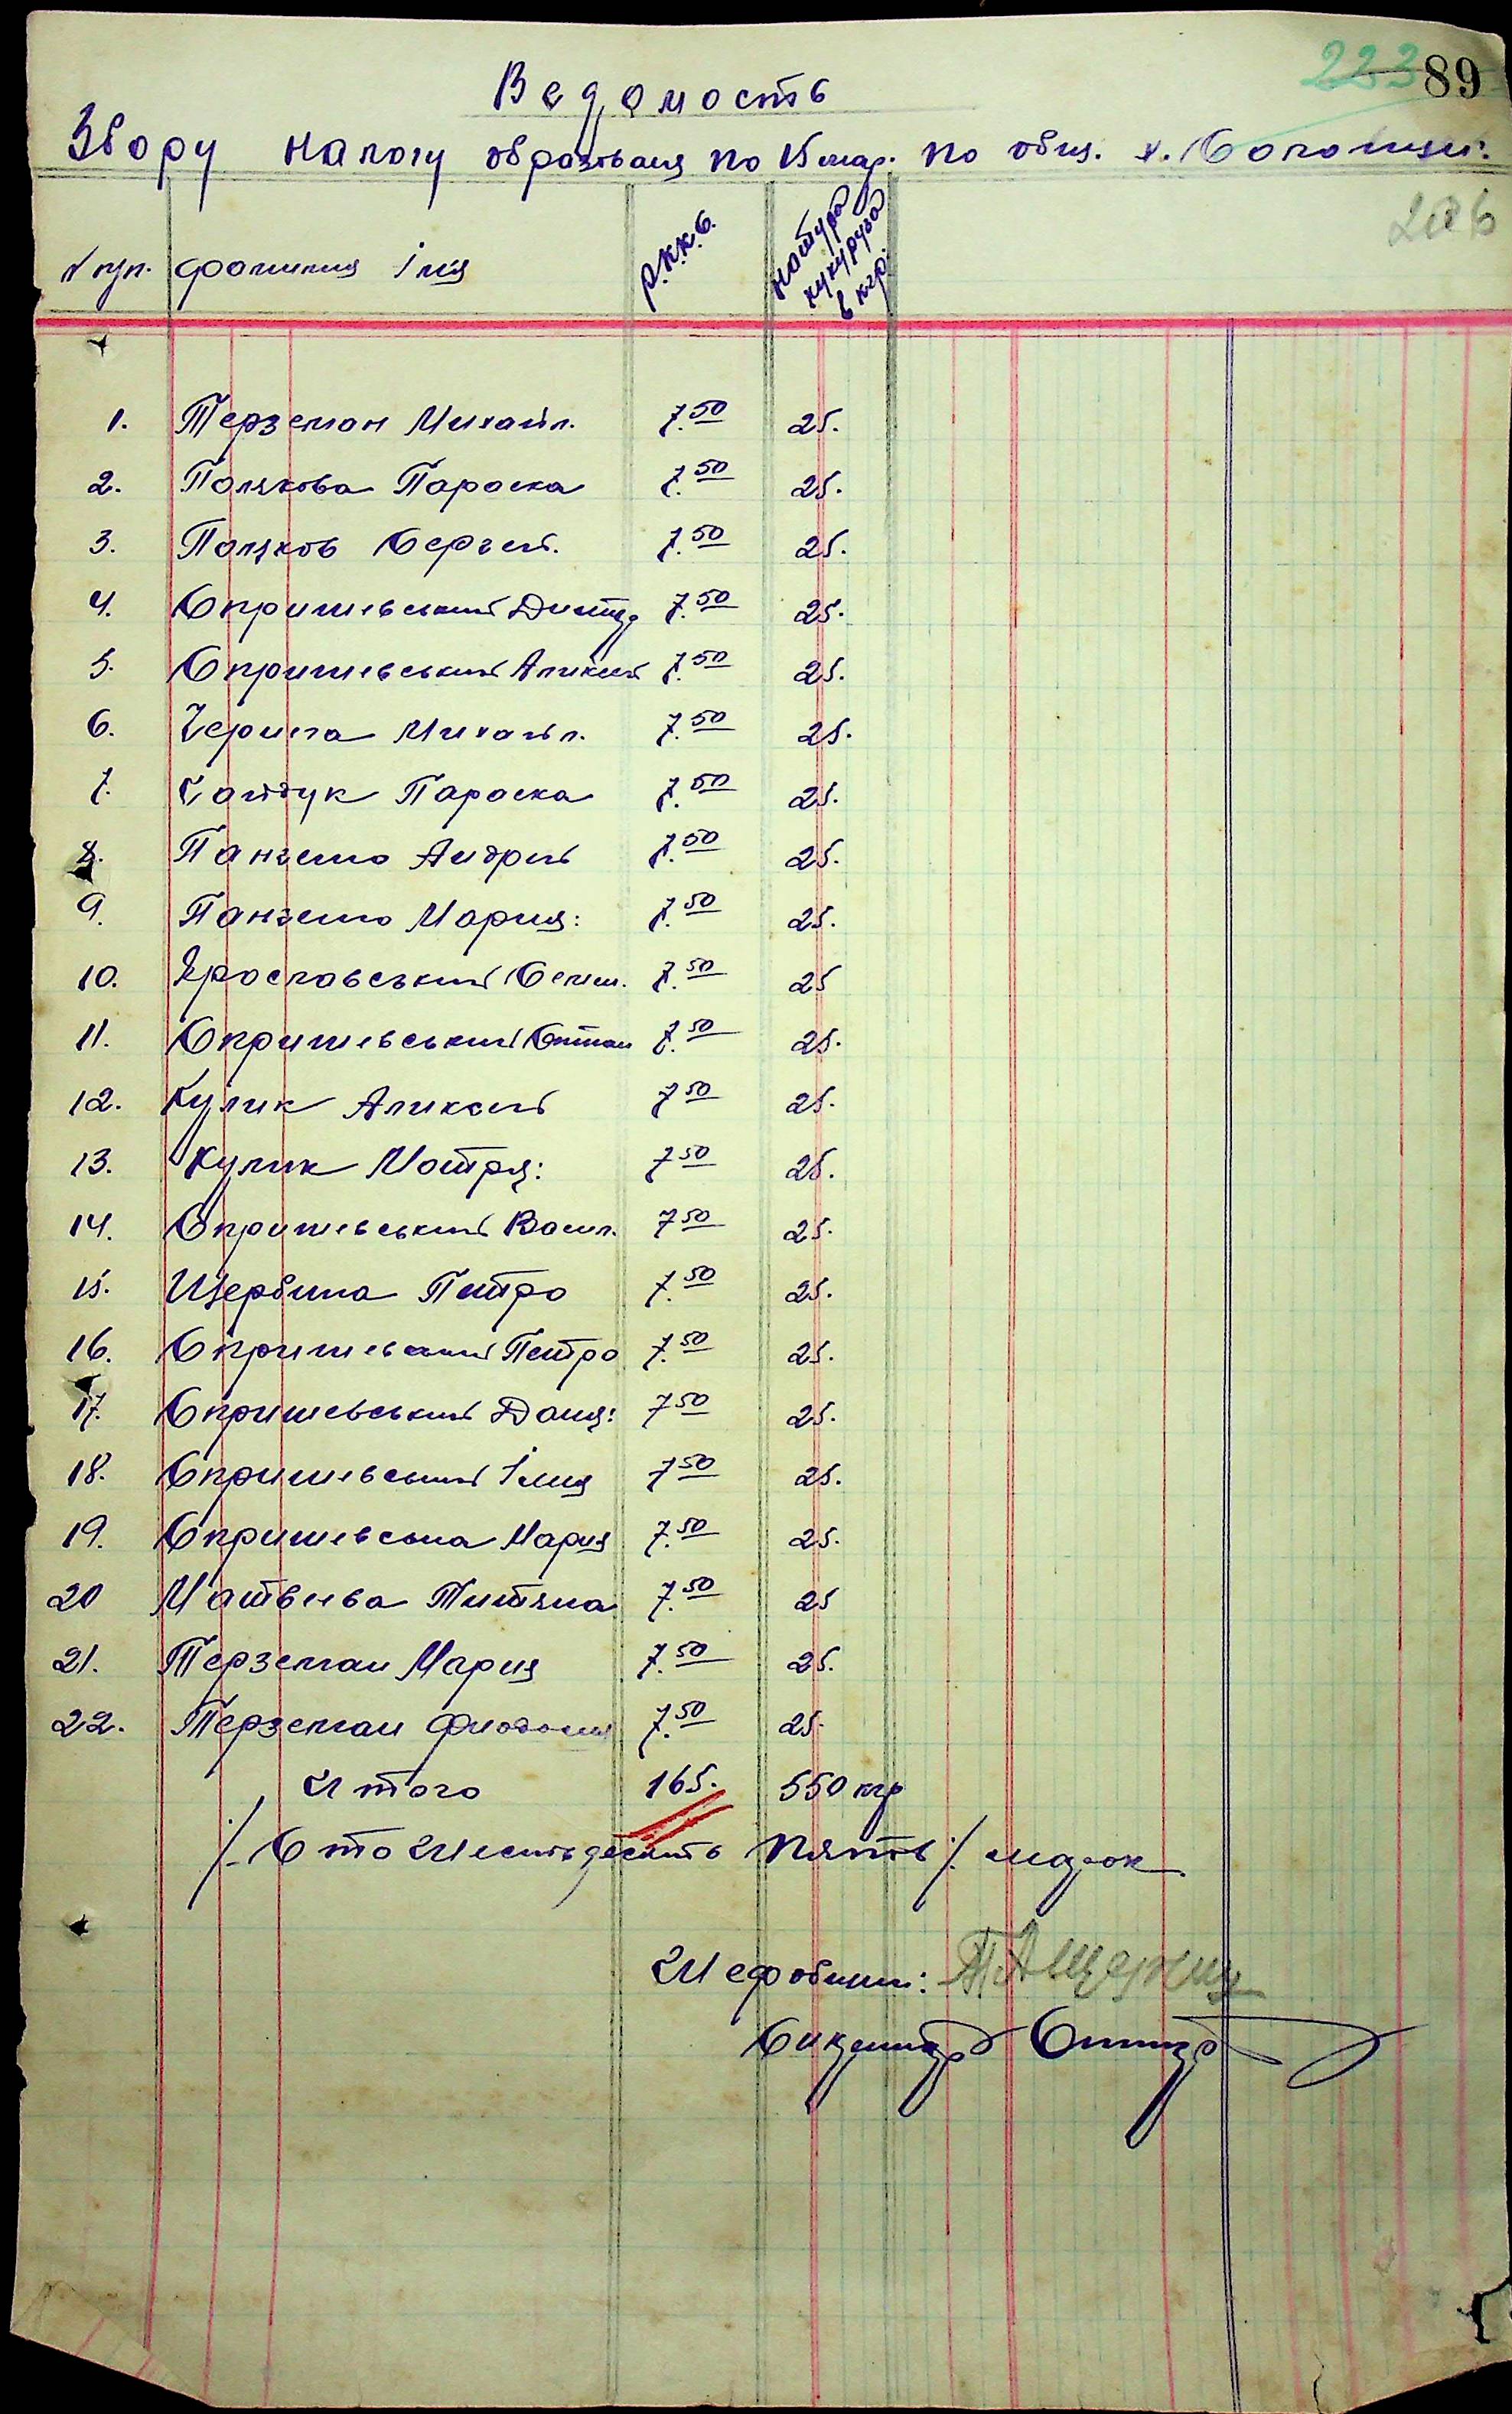 223 89
Ведомость
Збору налогу образованя по 15 мар. по общ. х.
206
№ пп. фамилия Імя Р.К.К.С. натура кукуруза в кгр.
1. Терземан Михайл. 7.50 25.
2. Полякова Параска 7.50 25.
3. Поляков Сергей. 7.50 25.
4. Опришевський Дмитр 7.50 25.
5. Опришевський Аликсей 7.50 25.
6. Черига Михайл. 7.50 25.
7. Гайдук Параска 7.50 25.
8. Панчено Андрей 7.50 25.
9. Панчено Мария: 7.50 25.
10. Ярославський Семен. 7.50 25
11. Опришевський Степан 7.50 25.
12. Кулик Аликсей 7 50 25.
13. Кулик Мотря: 7 50 25.
14. Опришевський Васил. 7 50 25.
15. Щербина Петро 7.50 25.
16. Опришевський Петро 7.50 25.
17. Опришевський Данил: 7 50 25.
18. Опришевський Ілия 7 50 25.
19. Опришевська Мария 7.50 25.
20 Матвеева Титяна 7.50 25
21. Терземан Мария 7.50 25.
22. Терземан Фиодосия 7.50 25.
Итого 165. 550 кгр
/. Сто Шестьдесить пять ./ марок
Шеф общини:
Сикритар